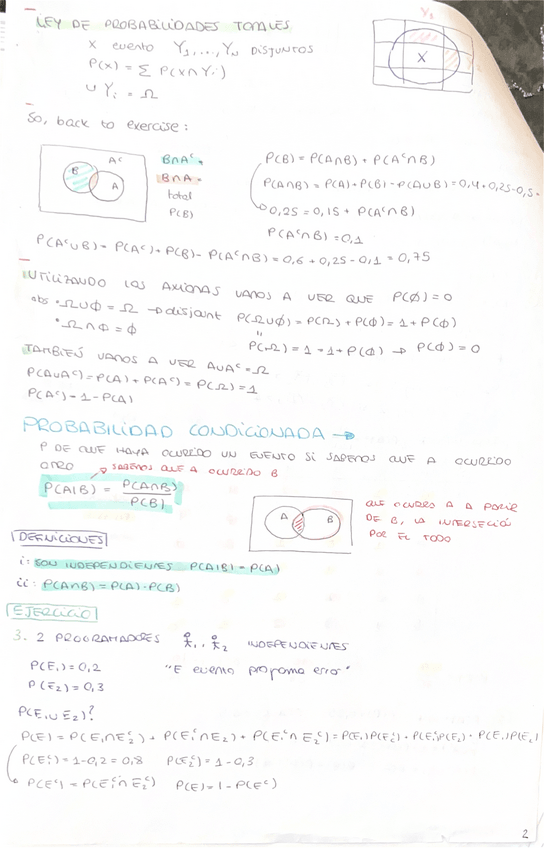 LEY DE PROBABILIDADES TOTALES
X evento Y₁,...,Yₙ DISJUNTOS
P(X) = Σ P(X∩Yᵢ)
∪ Yᵢ = Ω
Y₁
X
So, back to exercise:
Aᶜ
B
A
B∩Aᶜ +
B∩A =
total
P(B)
P(B) = P(A∩B) + P(Aᶜ∩B)
P(A∩B) = P(A) + P(B) - P(A∪B) = 0,4 + 0,25 - 0,5 =
0,25 = 0,15 + P(Aᶜ∩B)
P(Aᶜ∩B) = 0,1
P(Aᶜ∪B) = P(Aᶜ) + P(B) - P(Aᶜ∩B) = 0,6 + 0,25 - 0,1 = 0,75
UTILIZANDO LOS AXIOMAS VAMOS A VER QUE P(∅) = 0
obs · Ω∪∅ = Ω → disjoint P(Ω∪∅) = P(Ω) + P(∅) = 1 + P(∅)
· Ω∩∅ = ∅
"
P(Ω) = 1 = 1 + P(∅) → P(∅) = 0
TAMBIÉN VAMOS A VER A∪Aᶜ = Ω
P(A∪Aᶜ) = P(A) + P(Aᶜ) = P(Ω) = 1
P(Aᶜ) = 1 - P(A)
PROBABILIDAD CONDICIONADA →
P DE QUE HAYA OCURRIDO UN EVENTO SI SABEMOS QUE A OCURRIDO
OTRO
SABEMOS QUE A OCURRIDO B
P(A|B) = P(A∩B)
P(B)
A
B
QUE OCURRA A A PARTIR
DE B, LA INTERSECIÓ
POR EL TODO
DEFINICIONES
i: SON INDEPENDIENTES P(A|B) = P(A)
ii: P(A∩B) = P(A) · P(B)
EJERCICIO
3. 2 PROGRAMADORES 1, 2 INDEPENDIENTES
P(E₁) = 0,2 "E evento programa error"
P(E₂) = 0,3
P(E₁∪E₂)?
P(E) = P(E₁∩E₂ᶜ) + P(E₁ᶜ∩E₂) + P(E₁ᶜ∩E₂ᶜ) = P(E₁)P(E₂ᶜ) + P(E₁ᶜ)P(E₂) + P(E₁)P(E₂)
P(E₁ᶜ) = 1 - 0,2 = 0,8 P(E₂ᶜ) = 1 - 0,3
P(Eᶜ) = P(E₁ᶜ∩E₂ᶜ) P(E) = 1 - P(Eᶜ)
2